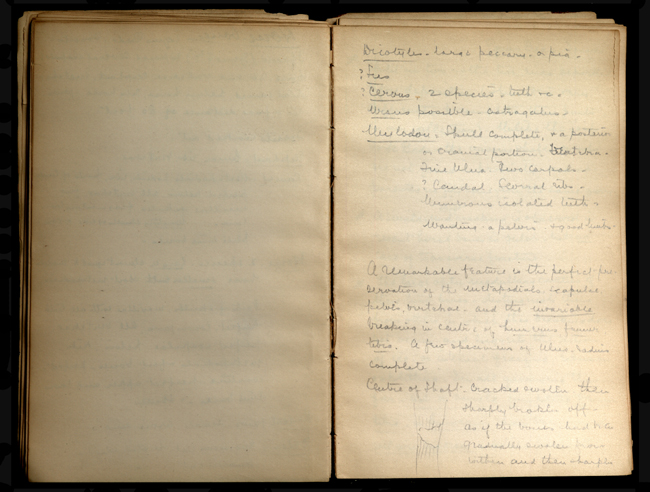 Dicotyles. large peccary or pig.
? Sus
? Cervus. 2 species. teeth &c.
Ursus possible. astragalus.
Mylodon. Skull complete, & a posterior
or cranial portion.
Fine Ulna. Two carpals.
? Caudal. Several ribs.
Numerous isolated teeth.
Wanting a pelvis & good limbs.
A remarkable feature is the perfect pre-
servation of the metapodials, scapulae
pelvis, vertebrae. and the invariable
breaking in centre of humerus femur
tibia. A few specimens of Ulna. radius
complete
Centre of Shaft. Cracked swollen then
sharply broken off
as if the bones had been
gradually swollen from
within and then sharply